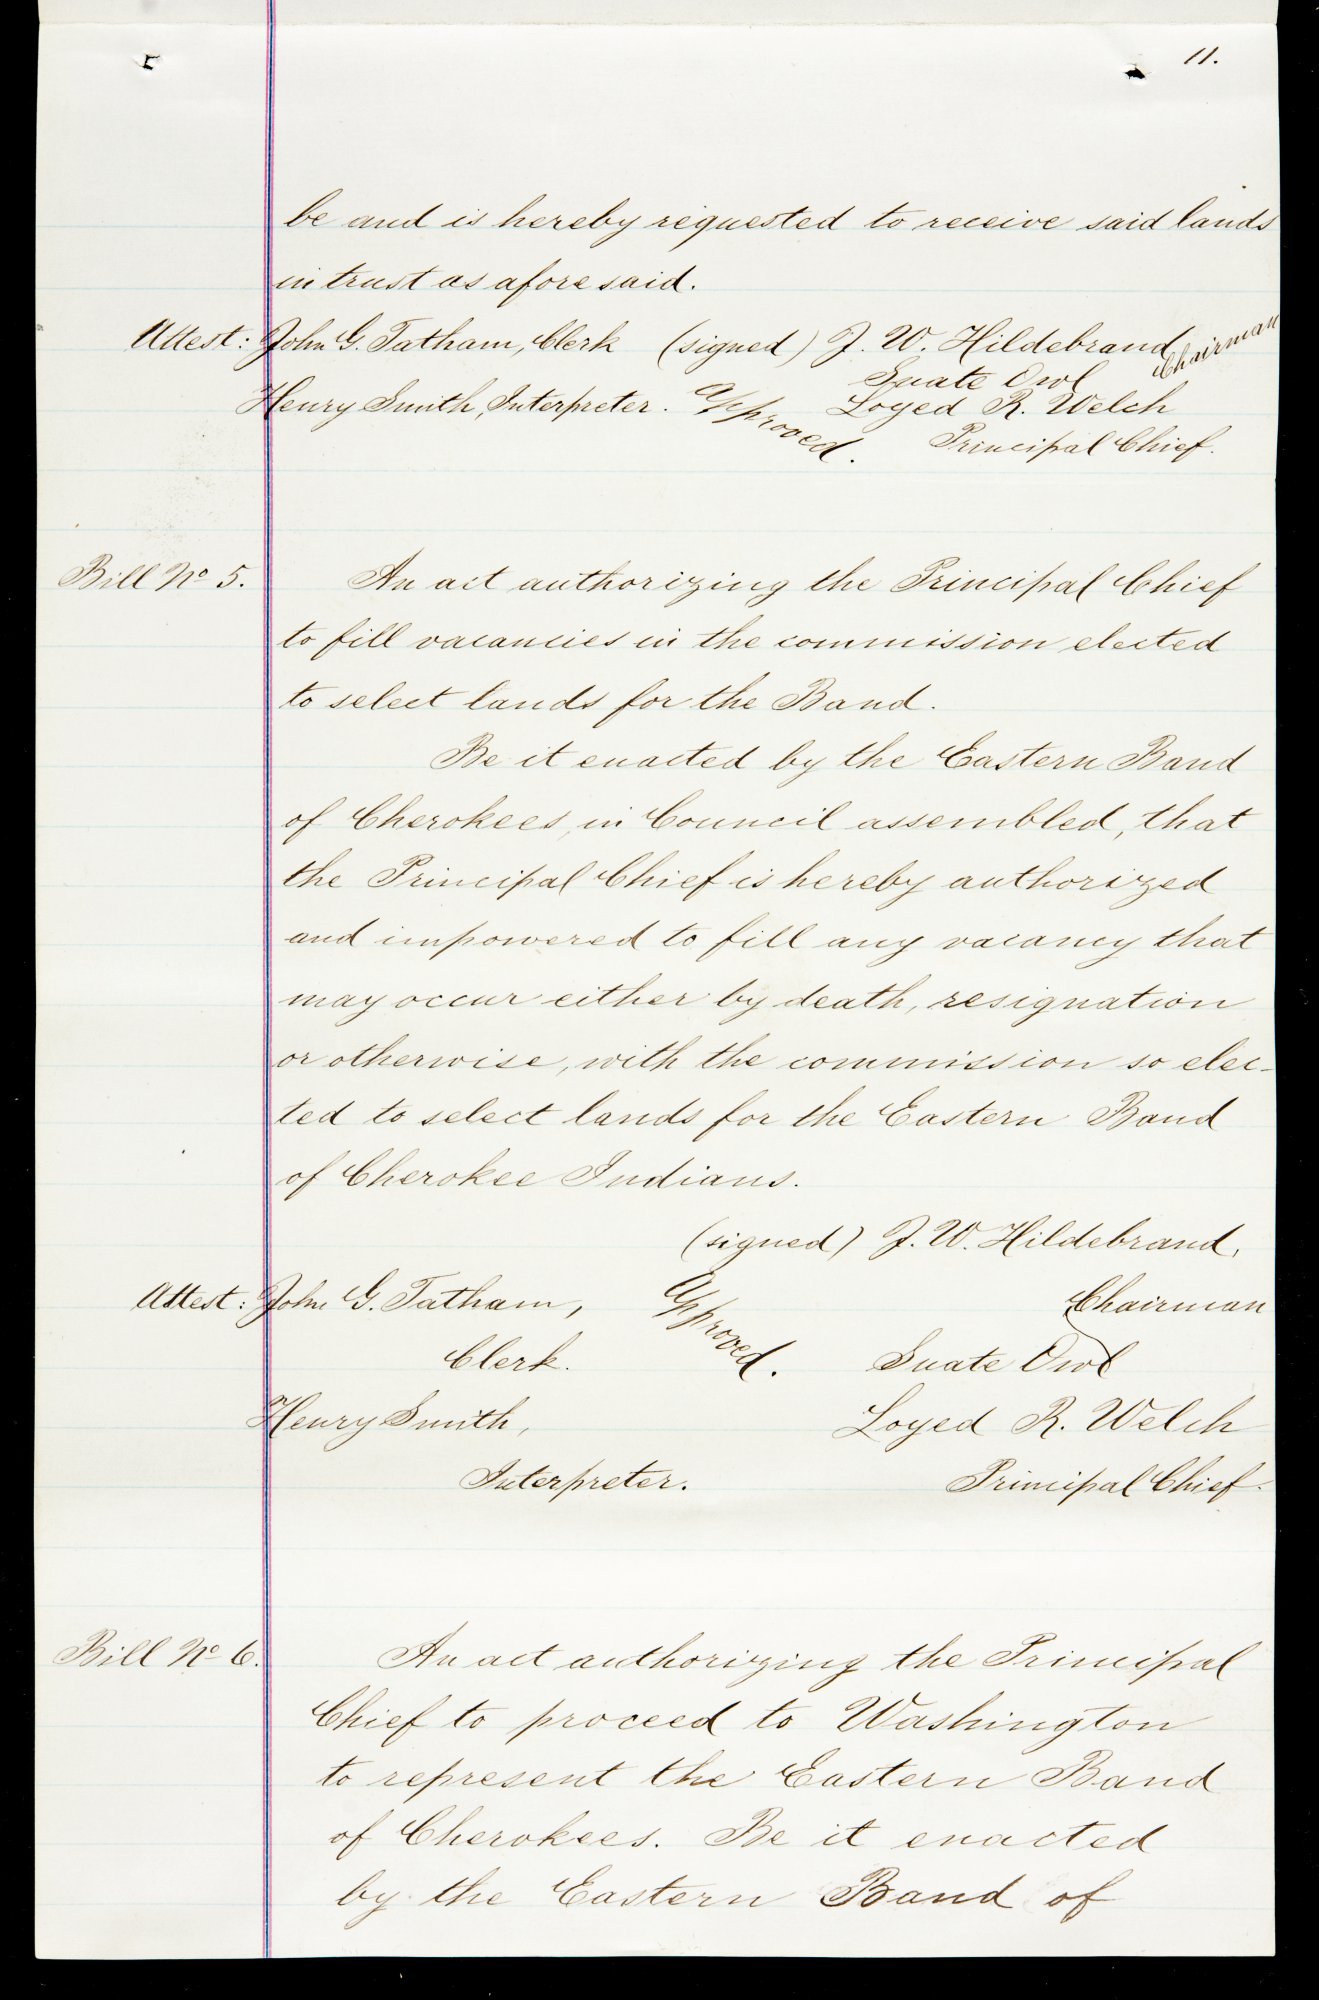 11.
be and is hereby requested to receive said lands
in trust as afore said.
Attest: John G. Tatham, Clerk (signed) J. W. Hildebrand Chairman
Suate Owl
Henry Smith, Interpreter. Approved. Loyed R. Welch
Principal Chief.
Bill No 5. An act authorizing the Principal Chief
to fill vacancies in the commission elected
to select lands for the Band.
Be it enacted by the Eastern Band
of Cherokees, in Council assembled, that
the Principal Chief is hereby authorized
and impowered to fill any vacancy that
may occur either by death, resignation
or otherwise, with the commission so elec-
ted to select lands for the Eastern Band
of Cherokee Indians.
(signed) J. W. Hildebrand,
Attest: John G. Tatham, Approved. Chairman
Clerk. Suate Owl
Henry Smith, Loyed R. Welch
Interpreter. Principal Chief.
Bill No 6. An act authorizing the Principal
Chief to proceed to Washington
to represent the Eastern Band
of Cherokees. Be it enacted
by the Eastern Band of